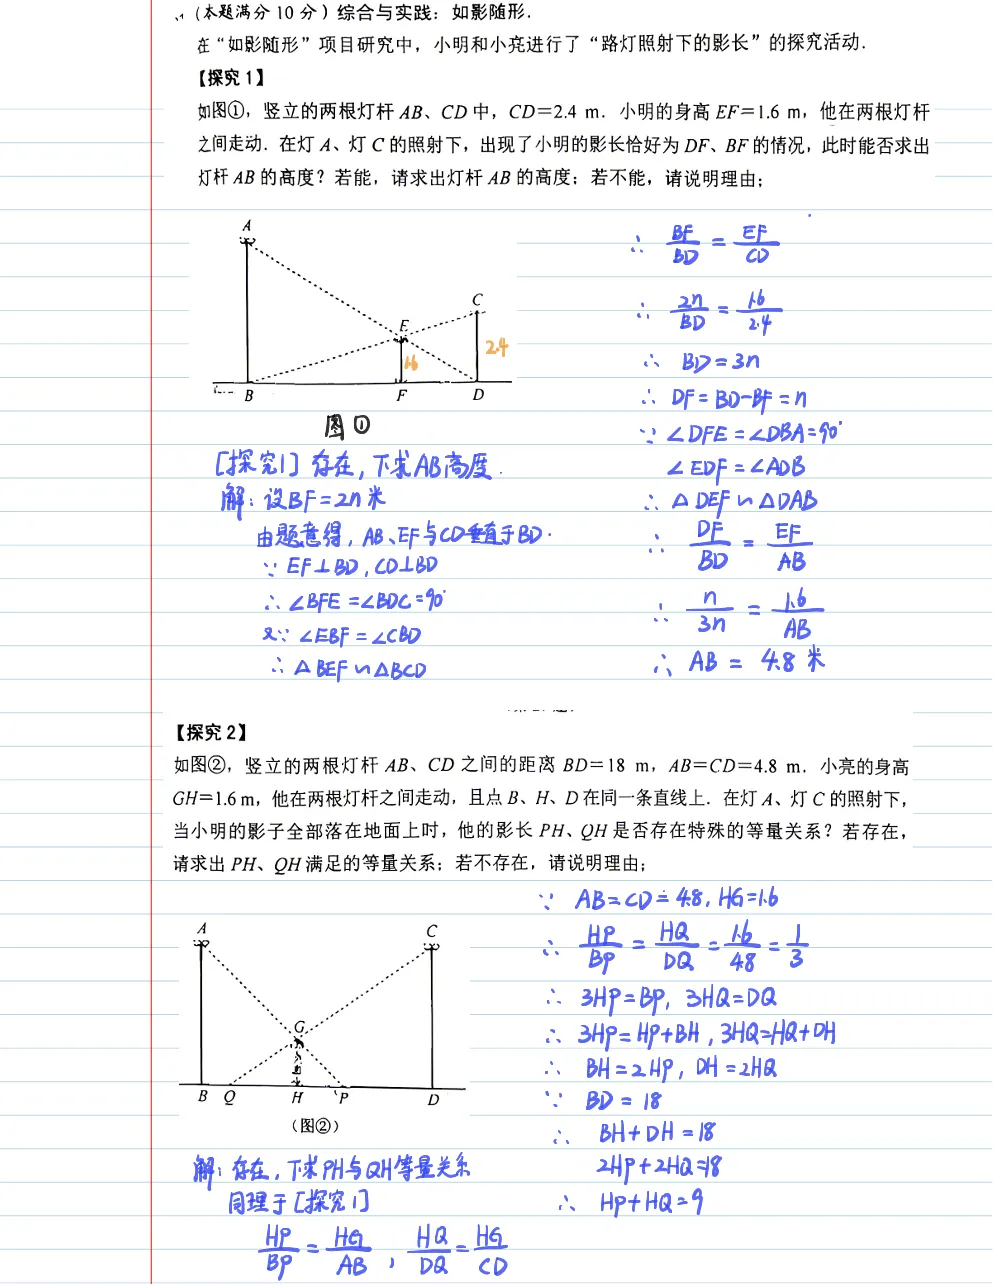 (本题满分 10 分) 综合与实践: 如影随形.
在“如影随形”项目研究中, 小明和小亮进行了“路灯照射下的影长”的探究活动.
【探究 1】
如图①, 竖立的两根灯杆 AB、CD 中, CD=2.4 m. 小明的身高 EF=1.6 m, 他在两根灯杆
之间走动. 在灯 A、灯 C 的照射下, 出现了小明的影长恰好为 DF、BF 的情况, 此时能否求出
灯杆 AB 的高度? 若能, 请求出灯杆 AB 的高度; 若不能, 请说明理由;
A
C
E
2.4
1.6
B F D
图①
[探究1] 存在, 下求AB高度.
解: 设BF=2n米
由题意得, AB、EF与CD垂直于BD.
∵ EF⊥BD, CD⊥BD
∴ ∠BFE=∠BDC=90°
又∵ ∠EBF=∠CBD
∴ △BEF∽△BCD
∴ BF/BD = EF/CD
∴ 2n/BD = 1.6/2.4
∴ BD=3n
∴ DF=BD-BF=n
∵ ∠DFE=∠DBA=90°
∠EDF=∠ADB
∴ △DEF∽△DAB
∴ DF/BD = EF/AB
∴ n/3n = 1.6/AB
∴ AB = 4.8 米
【探究 2】
如图②, 竖立的两根灯杆 AB、CD 之间的距离 BD=18 m, AB=CD=4.8 m. 小亮的身高
GH=1.6 m, 他在两根灯杆之间走动, 且点 B、H、D 在同一条直线上. 在灯 A、灯 C 的照射下,
当小明的影子全部落在地面上时, 他的影长 PH、QH 是否存在特殊的等量关系? 若存在,
请求出 PH、QH 满足的等量关系; 若不存在, 请说明理由;
A C
G
B Q H P D
(图②)
解: 存在, 下求PH与QH等量关系
同理于[探究1]
HP/BP = HG/AB, HQ/DQ = HG/CD
∵ AB=CD=4.8, HG=1.6
∴ HP/BP = HQ/DQ = 1.6/4.8 = 1/3
∴ 3HP=BP, 3HQ=DQ
∴ 3HP=HP+BH, 3HQ=HQ+DH
∴ BH=2HP, DH=2HQ
∵ BD=18
∴ BH+DH=18
2HP+2HQ=18
∴ HP+HQ=9